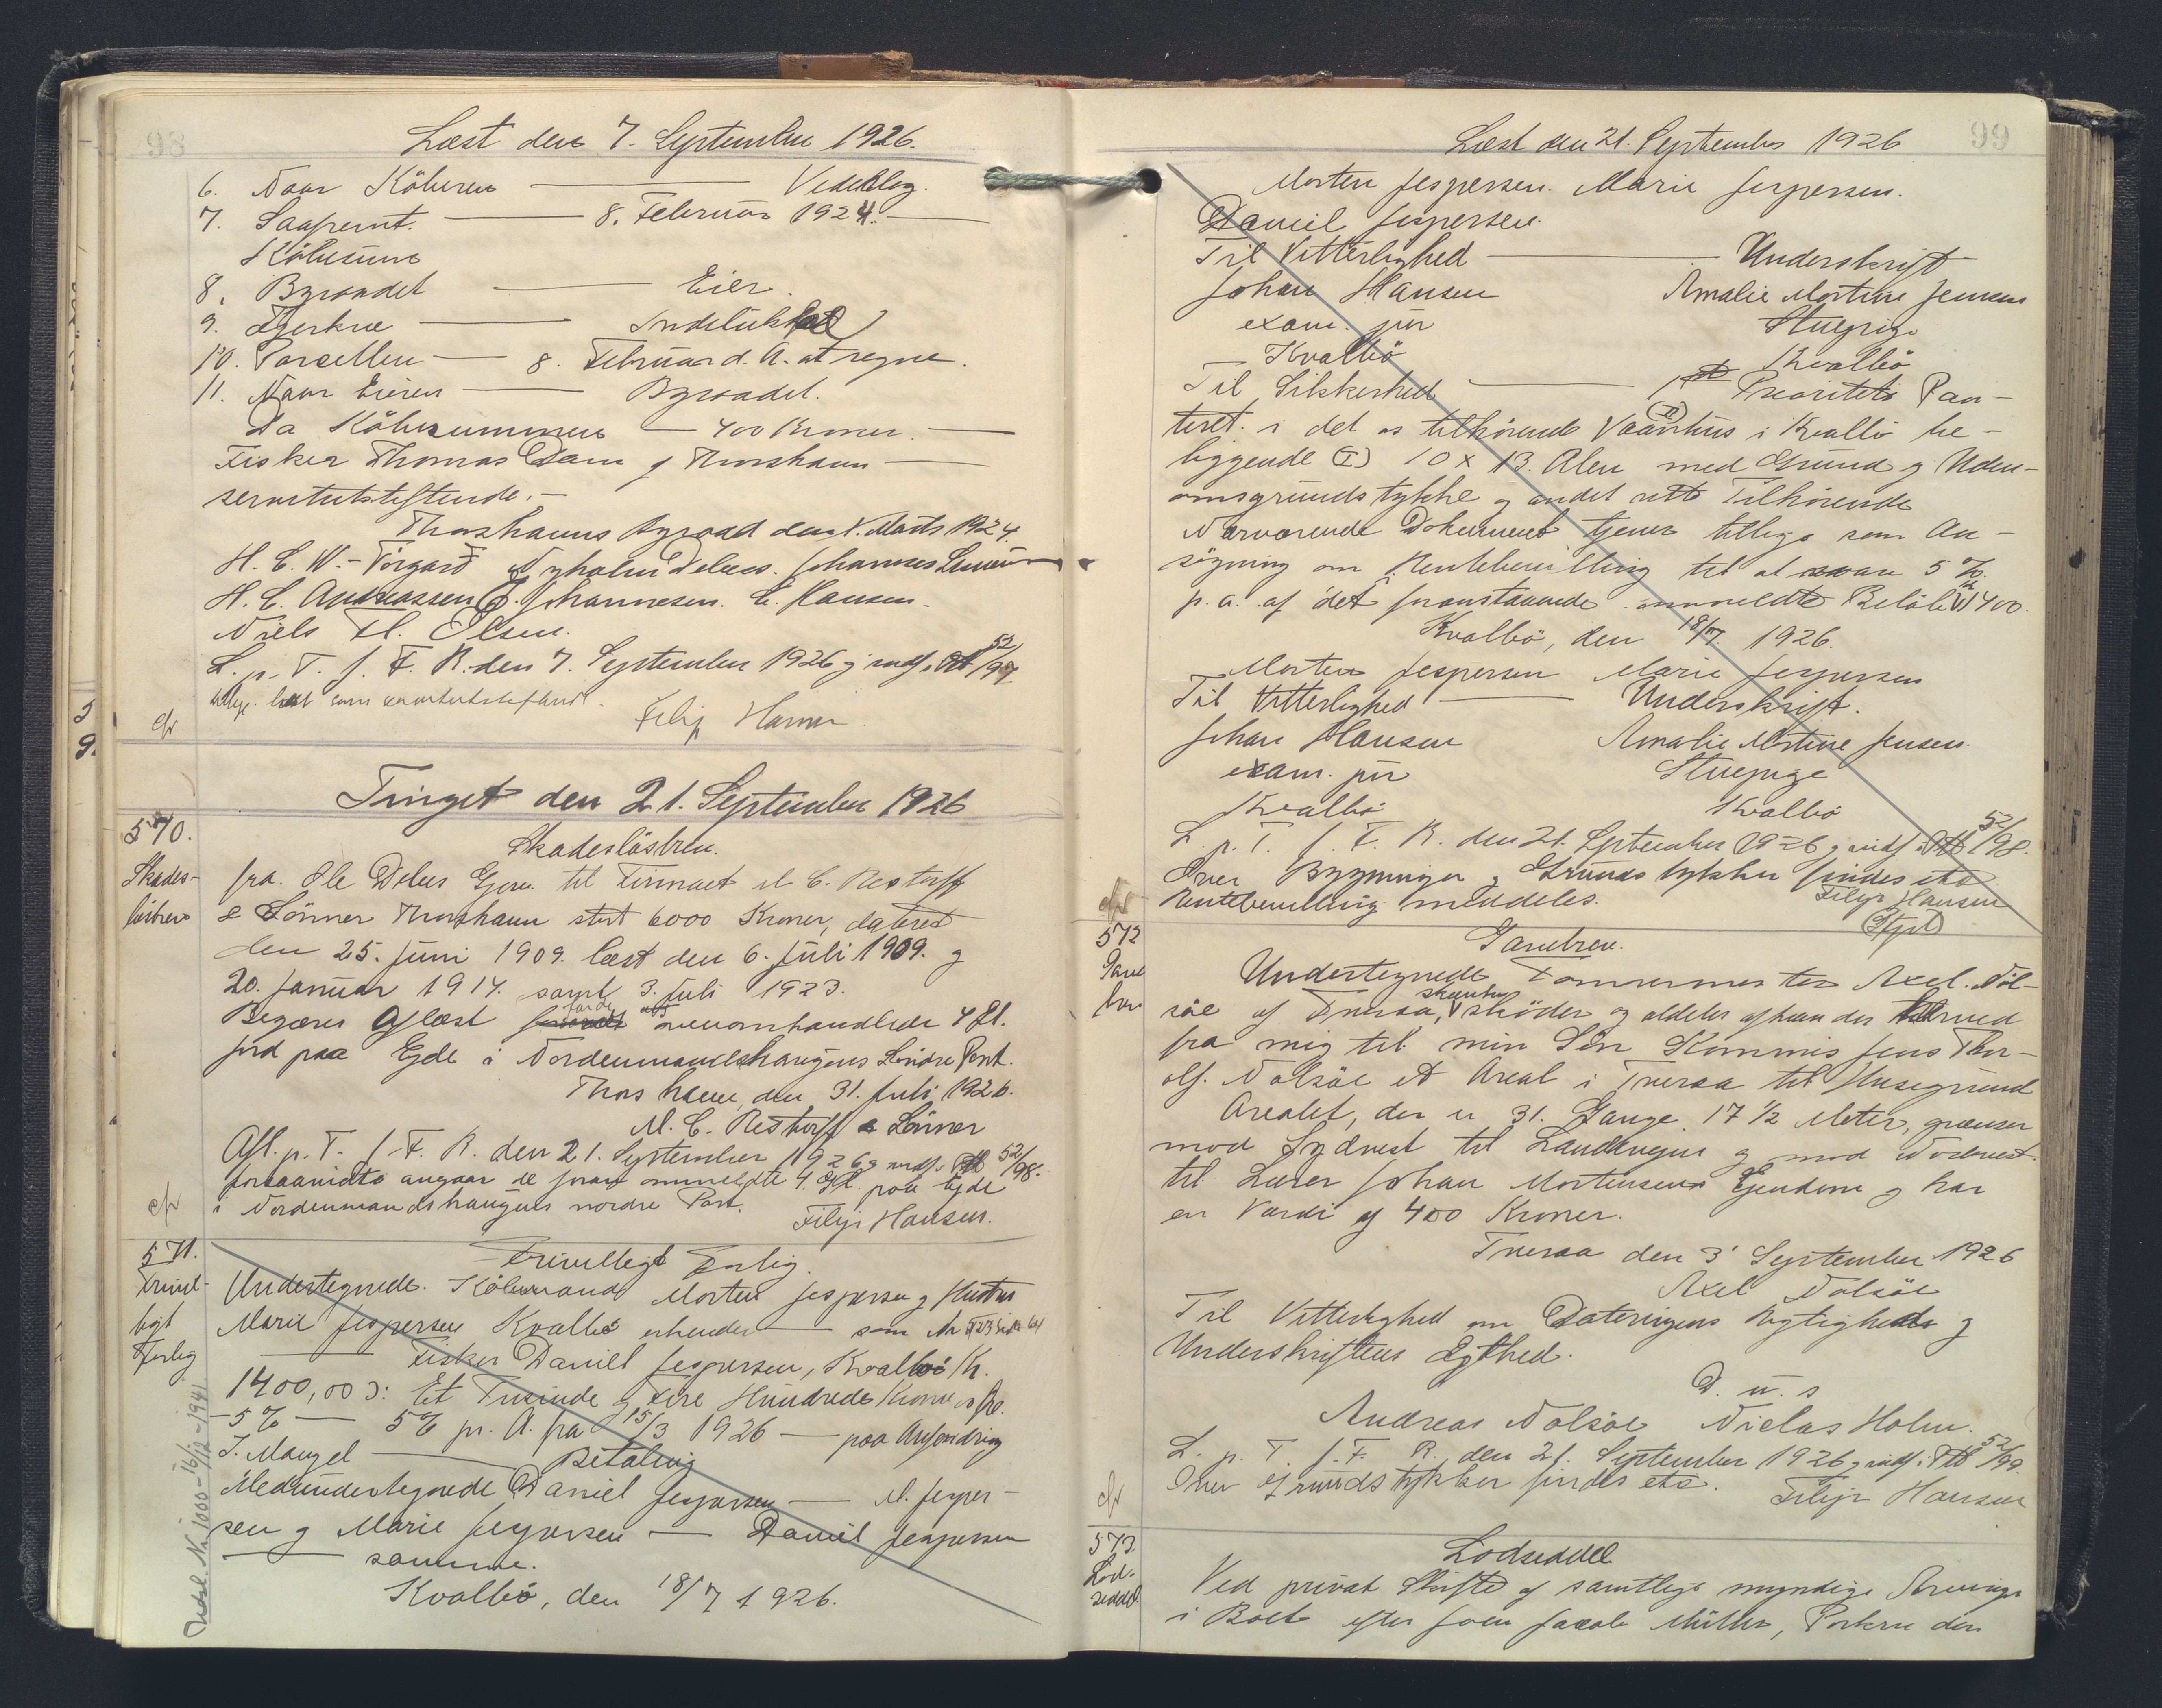 98
Læst den 7. September 1926.
6. Naar Köberen — Vederlag.
7. Saafremt. — 8. Februar 1924. —
Köbesum
8. Byraadet — Eier.
9. — Indelukket
10. Parcellen — 8. Februar d. A. at regne.
11. Naar Eieren — Byraadet.
Da Köbesummen — 400 Kroner. —
Fisker Thomas Dam af Thorshavn —
servitutstiftende. —
Thorshavns Byraad den 1. Marts 1924.
H. C. W. - Tórgarð Nyholm Debes. Johannes
H. C. Andreassen J. Johannesen. E. Hansen.
Niels Fl. Olsen.
L. p. T. f. F. R. den 7. September 1926 g indf. i Ptb 52/97.
læst som servitutstiftende.
cfr Filip Hansen
Tinget den 21. September 1926
570.
Skades-
lösbrev
Skadeslösbrev.
fra Ole Debes Gjov. til Firmaet M. C. Restorff
& Sönner Thorshavn stort 6000 Kroner, dateret
den 25. Juni 1909. læst den 6. Juli 1909. g
20. Januar 1914. samt 3. Juli 1923.
Begæres aflæst ovenomhandlede 4 Gl.
Jord paa Ejde i Nordenmandshaugens Söndre Part.
Thorshavn, den 31. Juli 1926.
M. C. Restorff & Sönner
Afl. p. T. f. F. R. den 21. September 1926 g indf. i Ptb 52/98.
forsaavidt angaar de foran ommeldte 4. Gl. paa Ejde
i Nordenmandshaugens nordre Part.
cfr Filip Hansen.
571.
Frivil-
ligt
Forlig
Frivilligt Forlig.
Undertegnede. Köbmand Morten Jespersen g Hustru
Marie Jespersen Kvalbö erkender — som Nr 423 Side 64
— Fisker Daniel Jespersen, Kvalbö Kr.
1400,00 ɔ: Et Tusinde g Fire Hundrede Kroner
— 5% — 5% pr. A. fra 15/3 1926 — paa Anfordring
I. Mangel — Betaling
Medundertegnede Daniel Jespersen — M. Jesper-
sen g Marie Jespersen — Daniel Jespersen
— samme.
Kvalbö, den 18/7 1926.
Indsl. Nr. 1000 - 16/12 - 1941
99
Læst den 21. September 1926
Morten Jespersen. Marie Jespersen.
Daniel Jespersen.
Til Vitterlighed — Underskrift
Johan Hansen Amalie Mortine Jensen
exam. jur Stuepige
Kvalbö Kvalbö
Til Sikkerhed — 1ste Prioritets Pan-
teret. i det os tilhörende Vaanhus i Kvalbö be-
liggende 10 x 13. Alen med Grund g Uden-
omsgrundstykke og andet rette Tilhörende
Nærværende Dokument tjener tillige som An-
sögning om Rentebevilling til at svare 5 %
p. a. af det foranstaaende anmeldte Belöb 1400.
Kvalbö, den 18/7. 1926.
Morten Jespersen Marie Jespersen
Til Vitterlighed — Underskrift.
Johan Hansen Amalie Mortine Jensen.
exam. jur Stuepige
Kvalbö Kvalbö
L. p. T. f. F. R. den 21. September 1926 g indf. i Ptb 52/98.
Over Bygninger g Grundstykker findes etc
Rentebevilling meddeles. Filip Hansen
cfr
572
Gave
brev
Gavebrev.
Undertegnede Tömrermester Axel. Nol-
söe af Tveraa, skænker skøder og aldeles afhænder herved
fra mig til min Sön Kommis Jens Thor-
olf. Nolsöe et Areal i Tveraa til Husegrund
Arealet, der er 31. Gange 17 1/2 Meter, grænser
mod Sydvest til Landevejen g mod Nordvest
til Lærer Johan Mortensens Ejendom g har
en Værdi af 400 Kroner.
Tveraa den 3' September 1926
Axel Nolsöe
Til Vitterlighed om Dateringens Rigtighed g
Underskriftens Ægthed.
D. u. s
Andreas Nolsöe Niclas Holm.
L. p. T. f. F. R. den 21. September 1926 g indf. i Ptb 52/99.
Over Grundstykker findes etc. Filip Hansen
cfr
573.
Lod-
seddel
Lodseddel
Ved privat Skifte af samtlige myndige Arvinge
i Boet efter Joen Jacob Müller, Porkere den